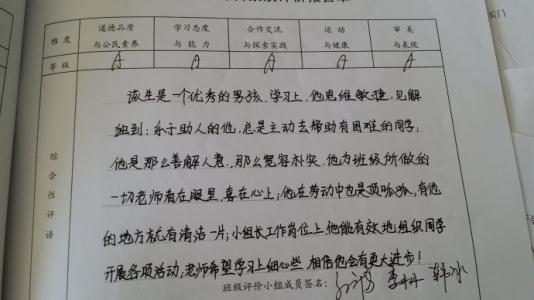 维度 道德品质与公民素养 学习态度与能力 合作交流与探索实践 运动与健康 审美与表现
等级 A A A A A
综合性评语
该生是一个优秀的男孩,学习上,他思维敏捷,见解
独到;乐于助人的他,总是主动去帮助有困难的同学;
他是那么善解人意,那么宽容朴实,他为班级所做的
一切老师看在眼里,喜在心上;他在劳动中也是顶呱呱,有他
的地方就有清洁一片;小组长工作岗位上他能有效地组织同学
开展各项活动;老师希望学习上细心些,相信他会有更大进步!
班级评价小组成员签名: 李丹 韩冰